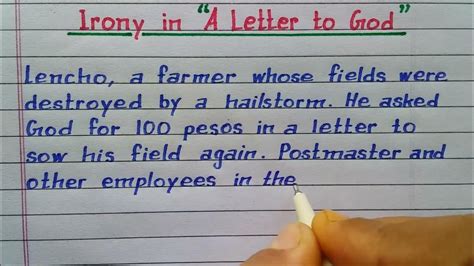 Irony in "A Letter to God"
Lencho, a farmer whose fields were
destroyed by a hailstorm. He asked
God for 100 pesos in a letter to
sow his field again. Postmaster and
other employees in the